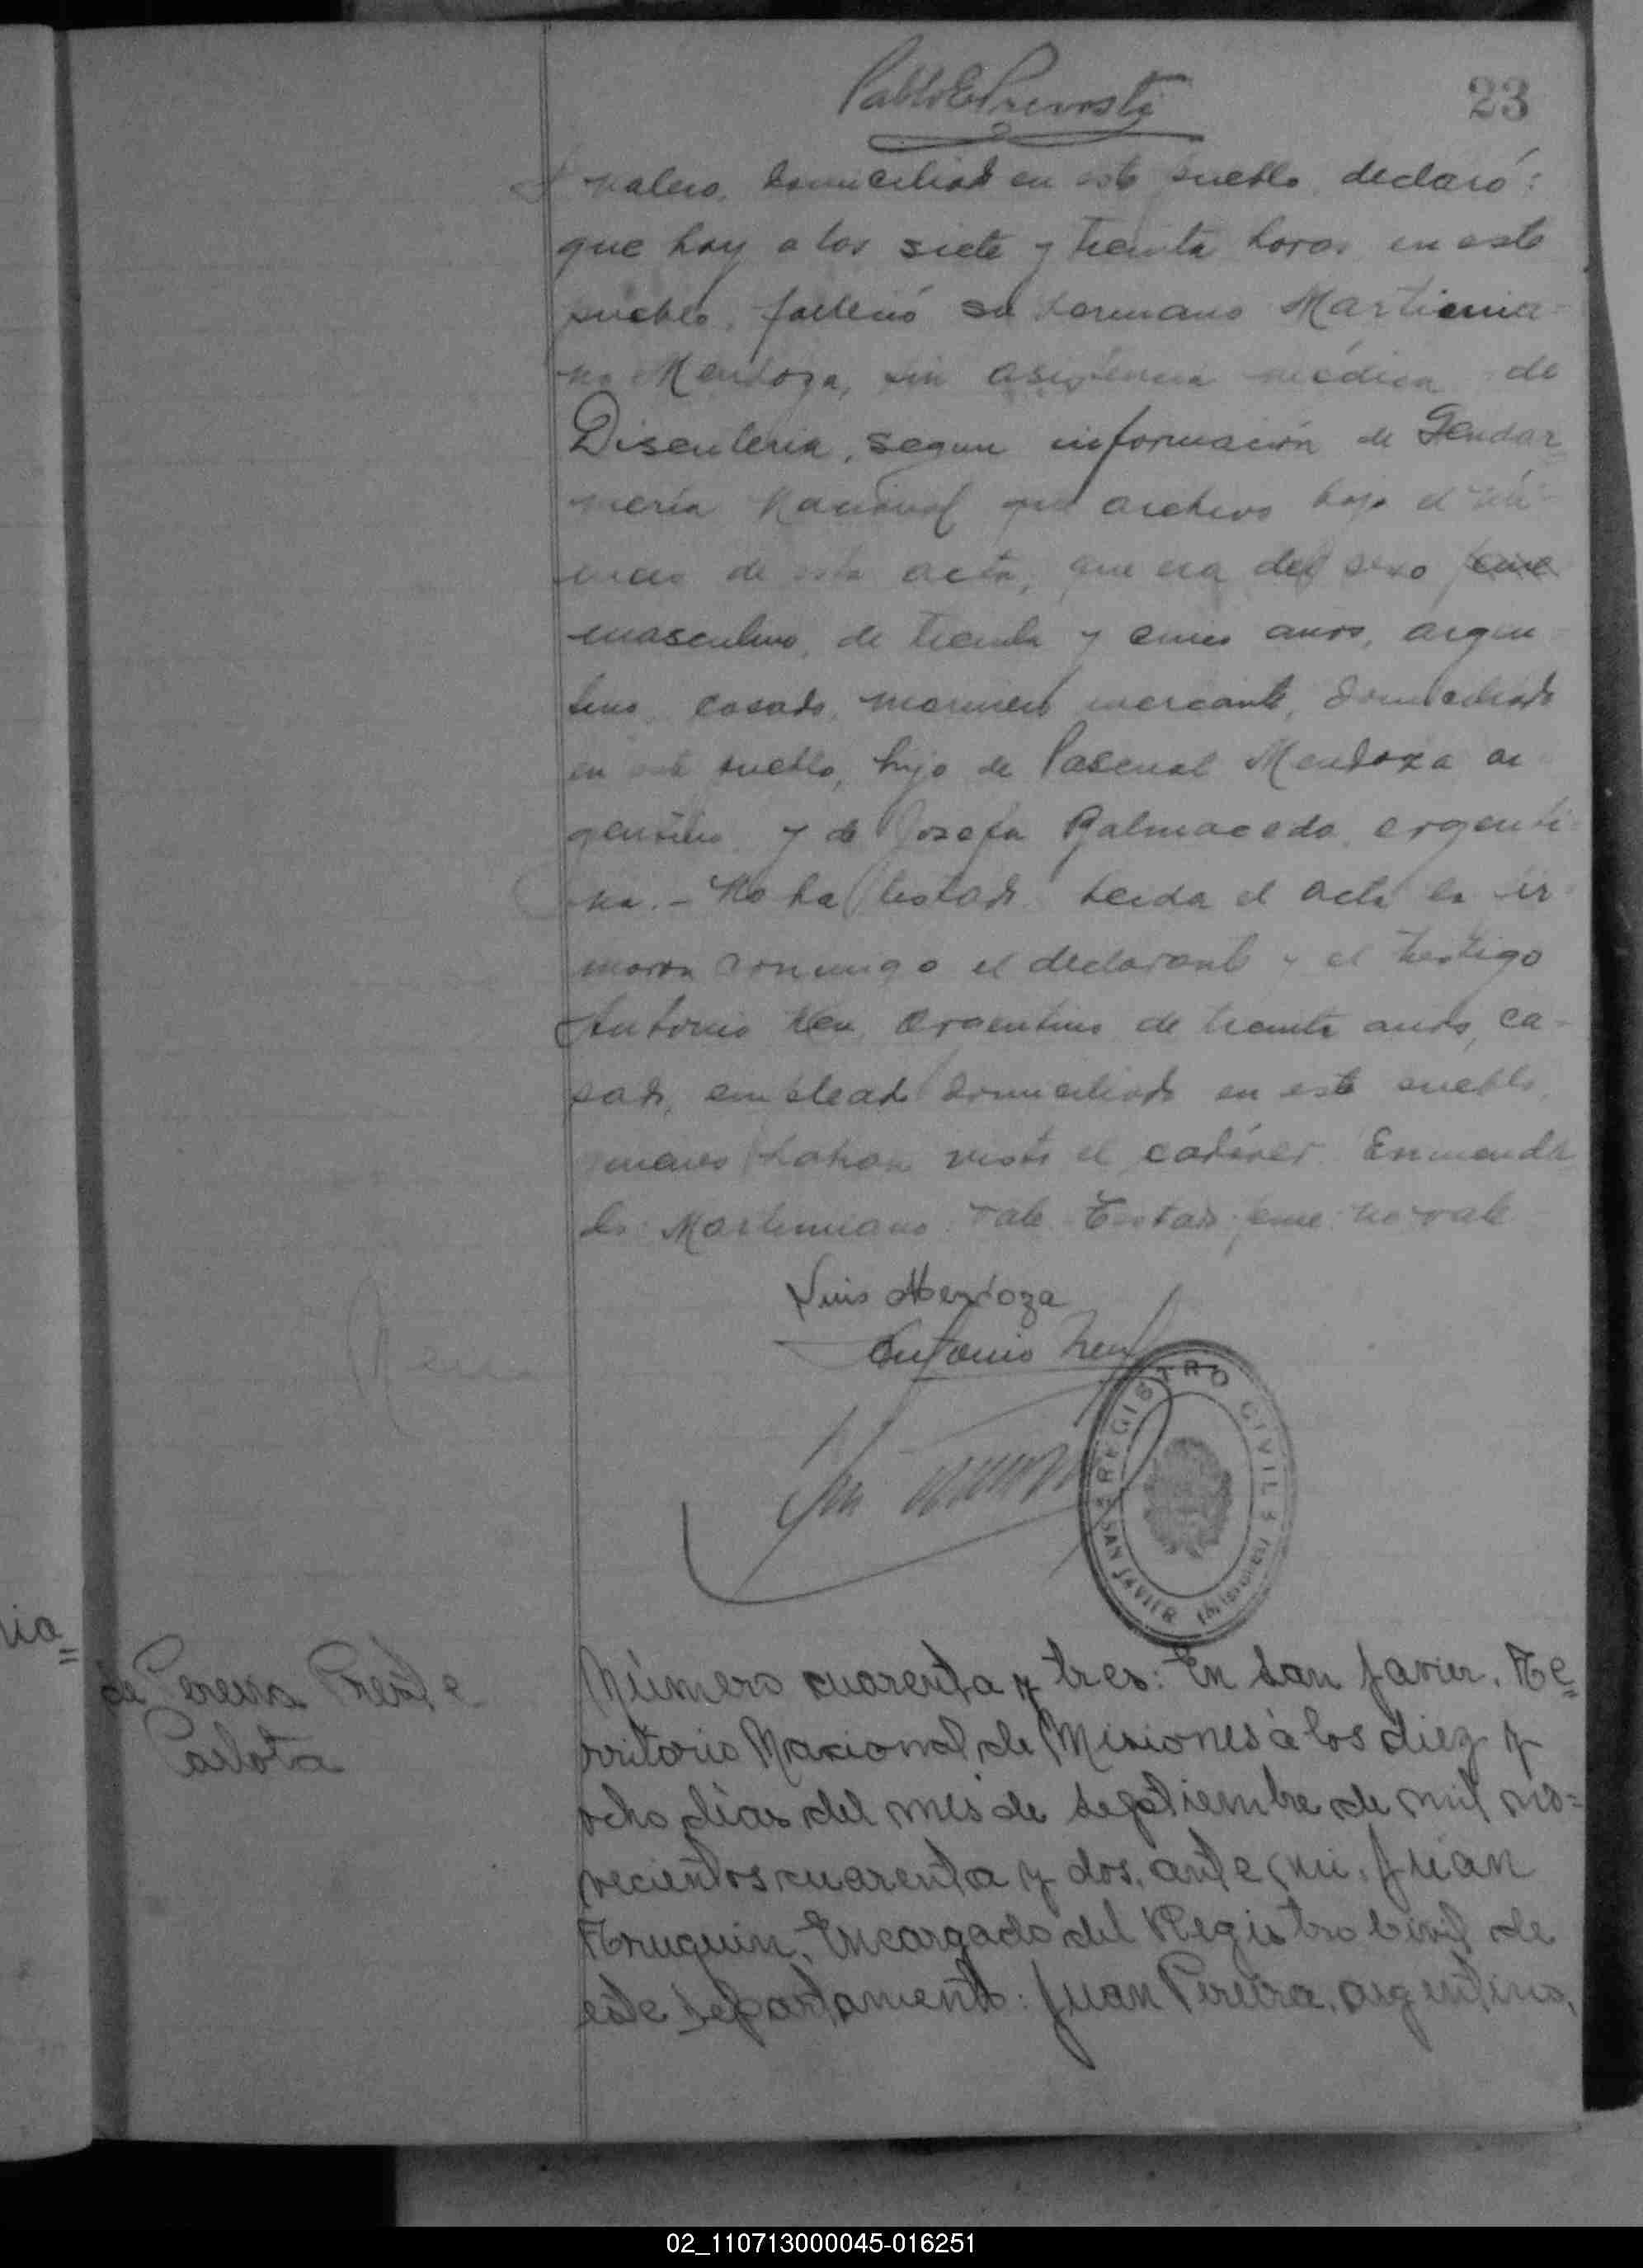 Pablo E Prevosti
23
nalero, domiciliado en este pueblo, declaró:
que hoy a las siete y treinta horas en este
pueblo, falleció su hermano Martimia-
no Mendoza, sin asistencia médica de
Disenteria, segun información de Gendar=
mería Nacional que archivo bajo el nú-
mero de esta acta, que era del sexo feme
masculino, de treinta y cinco años, argen-
tino casado, marinero mercante, domiciliado
en este pueblo, hijo de Pascual Mendoza ar-
gentino y de Josefa Balmaceda, argenti-
na. - No ha testado. Leida el acta la fir-
maron conmigo el declarante y el testigo
Antonio Argentino de treinta años, ca-
sado, empleado domiciliado en este pueblo,
quienes habian visto el cadáver Enmenda
do: Martimiano: vale. Testado: feme: no vale
Luis Mendoza
Antonio
REGISTRO CIVIL
SAN JAVIER (MISIONES)
de Pereira
Carlota
Número cuarenta y tres: En San Javier, Te=
rritorio Nacional de Misiones à los diez y
ocho días del mes de Septiembre de mil no=
vecientos cuarenta y dos, ante mi, Juan
Truquin, Encargado del Registro Civil de
este departamento: Juan Pereira, argentino,
02_110713000045-016251